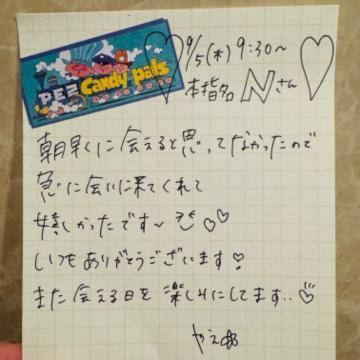 PEZ Candy Pals
9/5(木) 9:30〜
本指名 Nさん
朝早くに会えると思ってなかったので
急に会いに来てくれて
嬉しかったです〜
いつもありがとうございます
また会える日を楽しみにしてます..